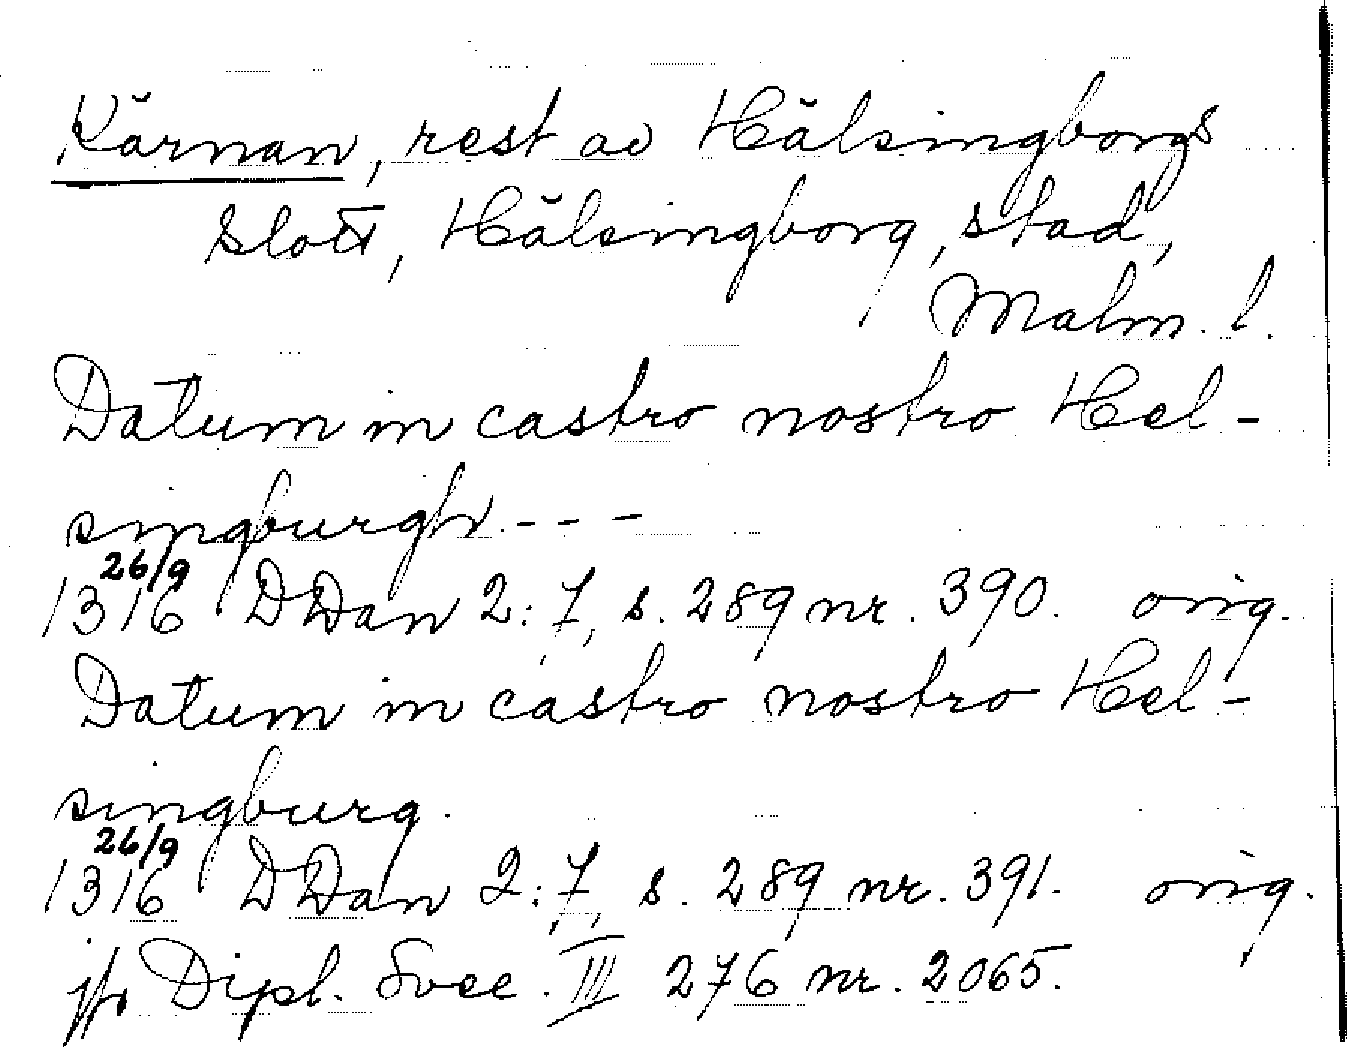 Kärnan, rest av Hälsingborgs
slott, Hälsingborg, stad,
Malm. l.
Datum in castro nostro Hel-
singburgh. - - -
26/9
1316 DDan 2:7, s. 289 nr. 390. orig.
Datum in castro nostro Hel-
singburg.
26/9
1316 DDan 2:7, s. 289 nr. 391. orig.
jfr Dipl. Svec. III 276 nr. 2065.